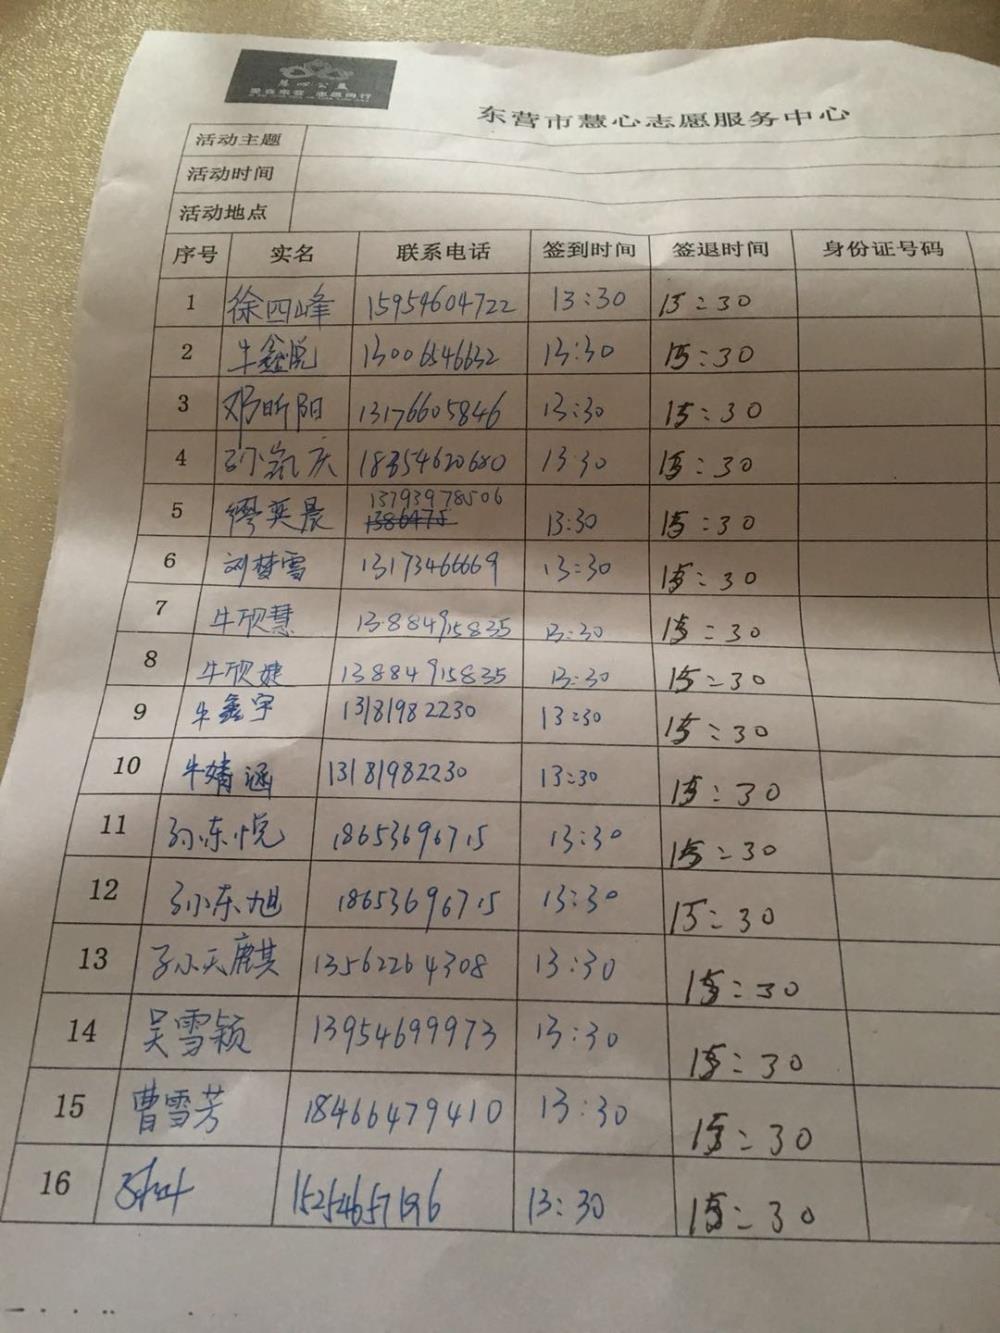 慧心公益
东营市慧心志愿服务中心
活动主题
活动时间
活动地点
序号 实名 联系电话 签到时间 签退时间 身份证号码
1 徐四峰 15954604722 13:30 15:30
2 牛鑫悦 13006546632 13:30 15:30
3 邓昕阳 13176605846 13:30 15:30
4 孙凯庆 18354620680 13:30 15:30
5 缪奕晨 13793978506 13:30 15:30
6 刘梦雪 13173466669 13:30 15:30
7 牛欣慧 13884915835 13:30 15:30
8 牛欣婕 13884915835 13:30 15:30
9 牛鑫宇 13181982230 13:30 15:30
10 牛婧涵 13181982230 13:30 15:30
11 孙东悦 18653696715 13:30 15:30
12 孙东旭 18653696715 13:30 15:30
13 孙天麒 13562264308 13:30 15:30
14 吴雪颖 13954699973 13:30 15:30
15 曹雪芳 18466479410 13:30 15:30
16 15254657196 13:30 15:30